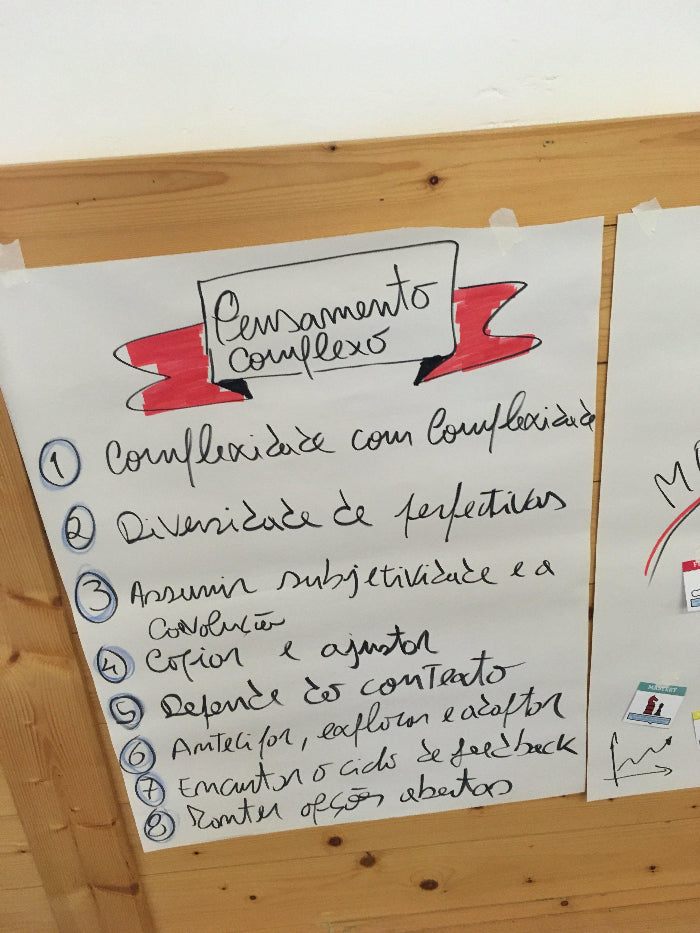 Pensamento
complexo
1 Complexidade com Complexidade
2 Diversidade de perspectivas
3 Assumir subjetividade e a
coevolução
4 Copiar e ajustar
5 Depende do contexto
6 Antecipar, explorar e adaptar
7 Encurtar o ciclo de feedback
8 Manter opções abertas
MASTERY